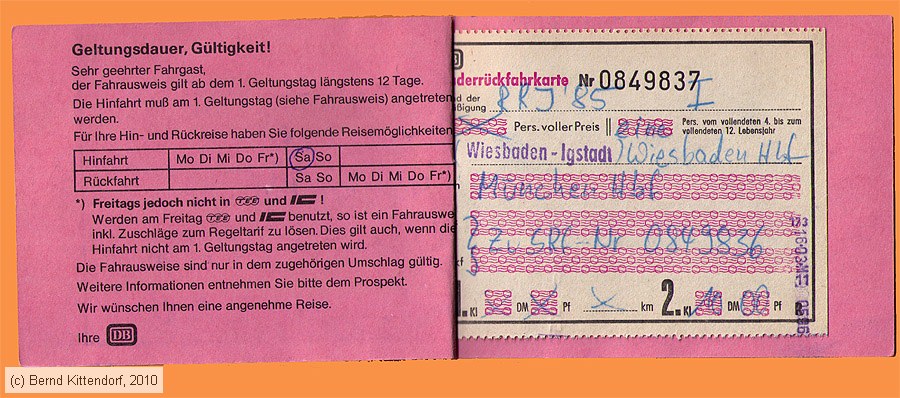 Geltungsdauer, Gültigkeit!
Sehr geehrter Fahrgast,
der Fahrausweis gilt ab dem 1. Geltungstag längstens 12 Tage.
Die Hinfahrt muß am 1. Geltungstag (siehe Fahrausweis) angetreten
werden.
Für Ihre Hin- und Rückreise haben Sie folgende Reisemöglichkeiten
Hinfahrt Mo Di Mi Do Fr*) Sa So
Rückfahrt Sa So Mo Di Mi Do Fr*)
*) Freitags jedoch nicht in TEE und IC !
Werden am Freitag TEE und IC benutzt, so ist ein Fahrauswe
inkl. Zuschläge zum Regeltarif zu lösen. Dies gilt auch, wenn die
Hinfahrt nicht am 1. Geltungstag angetreten wird.
Die Fahrausweise sind nur in dem zugehörigen Umschlag gültig.
Weitere Informationen entnehmen Sie bitte dem Prospekt.
Wir wünschen Ihnen eine angenehme Reise.
Ihre DB
derrückfahrkarte Nr 0849837
nd der
äßigung RRJ '85 I
Pers. voller Preis Pers. vom vollendeten 4. bis zum
vollendeten 12. Lebensjahr
(Wiesbaden-Igstadt) Wiesbaden Hbf
München Hbf
Zu SRC-Nr 0849836
1. Kl DM Pf km 2. Kl DM Pf
(c) Bernd Kittendorf, 2010